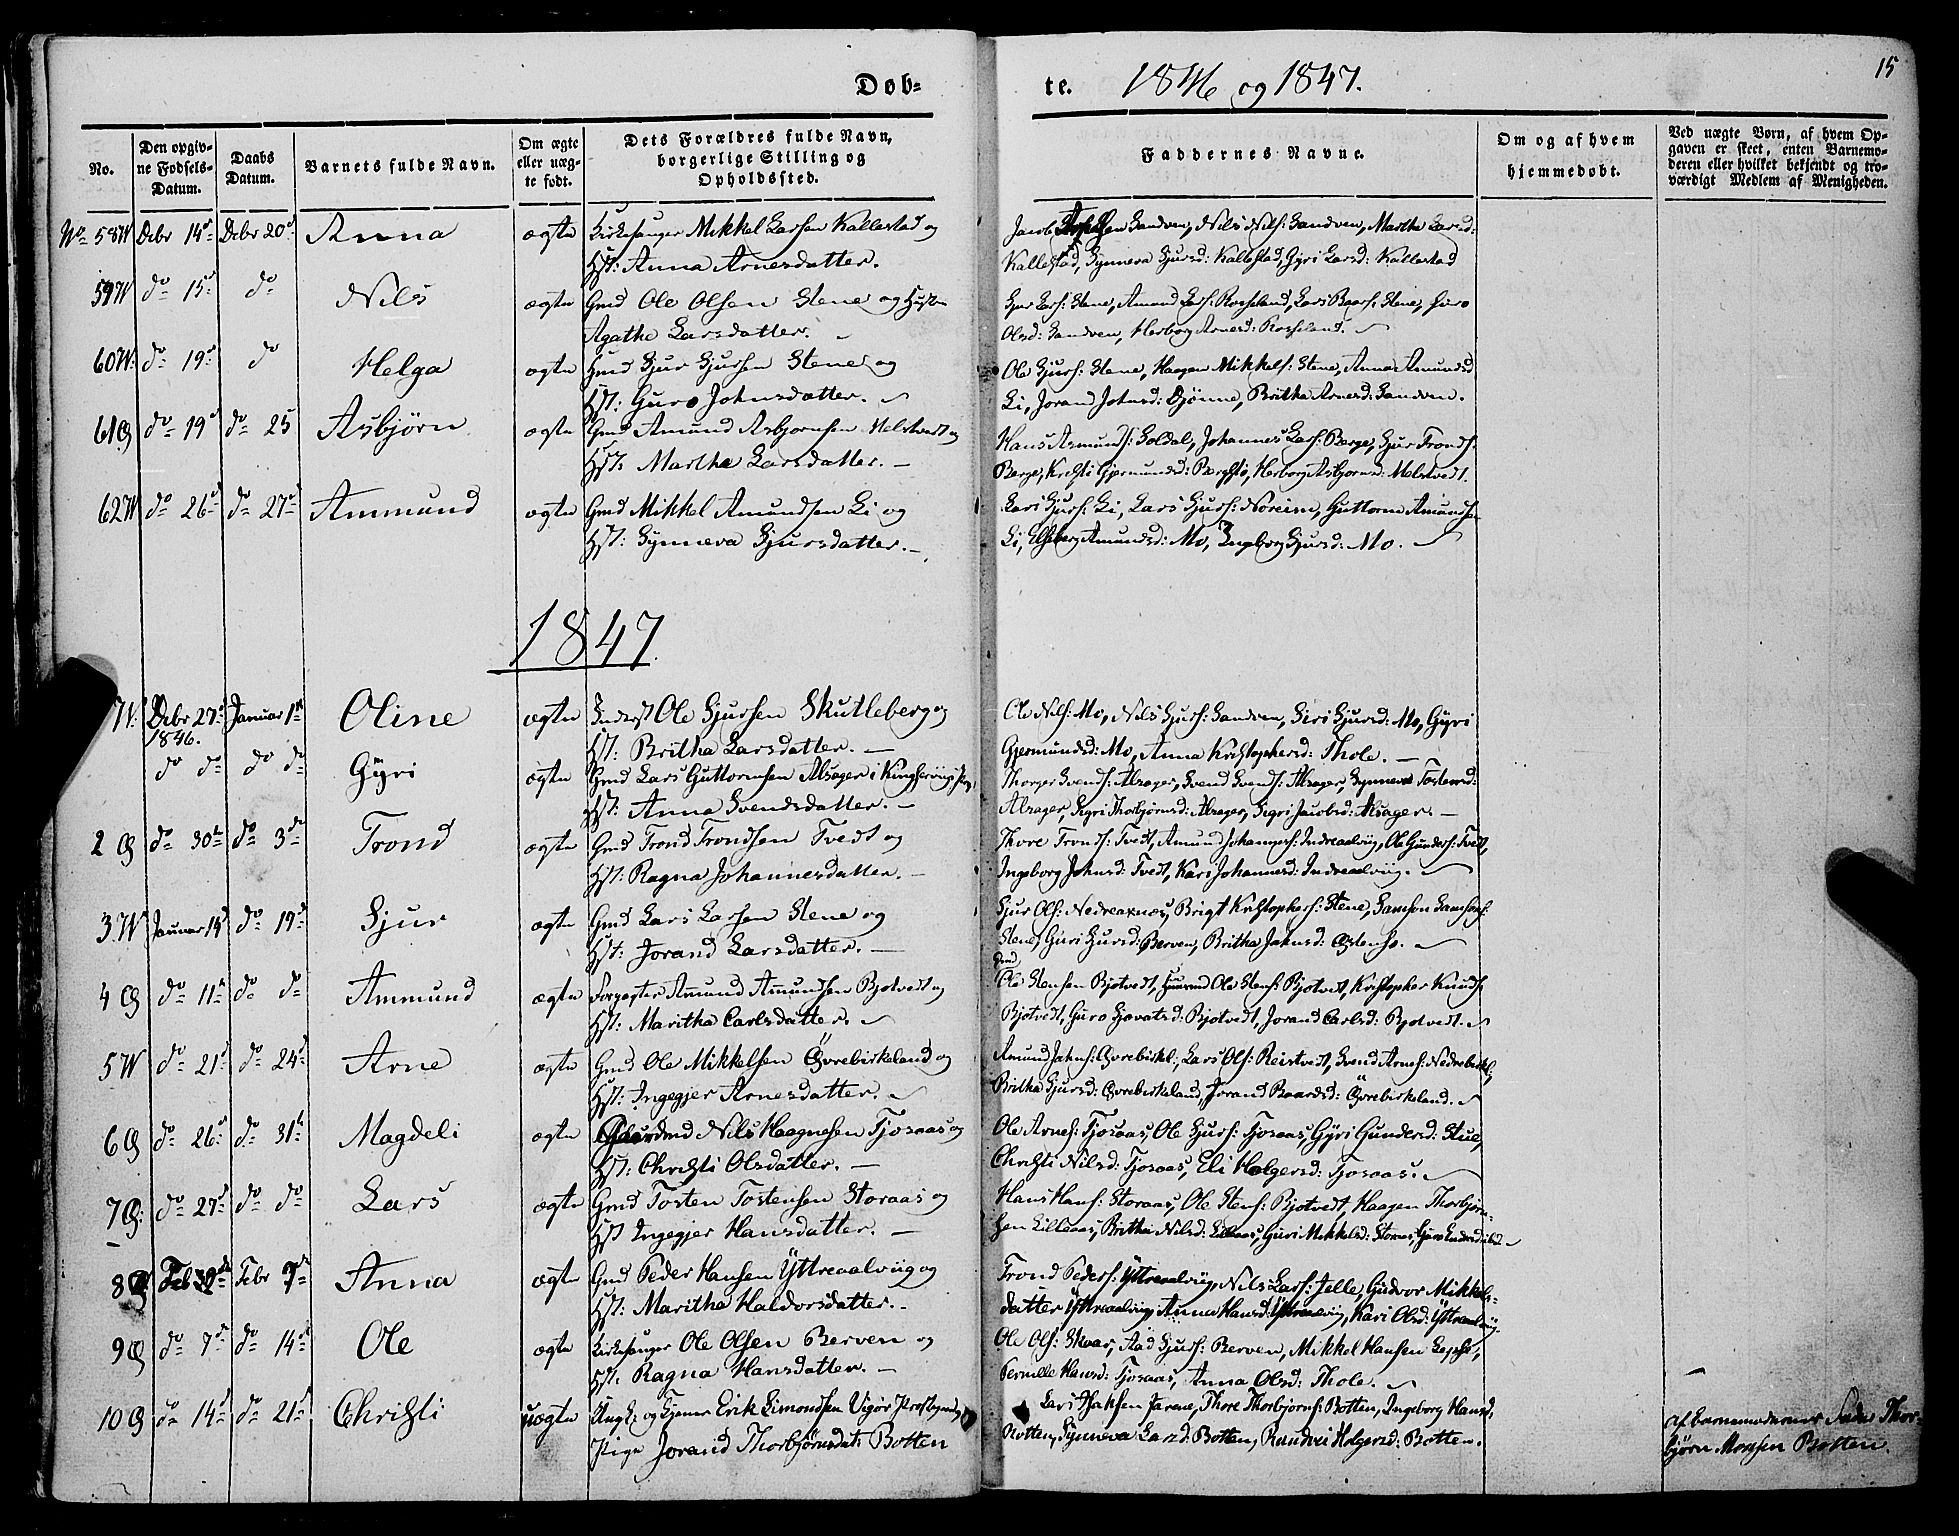 Døb=
te. 1846 og 1847.
15
No.
Den opgiv-
ne Fødsels-
Datum.
Daabs
Datum.
Barnets fulde Navn.
Om ægte
eller uæg-
te født.
Dets Forældres fulde Navn,
borgerlige Stilling og
Opholdssted.
Faddernes Navne.
Om og af hvem
hjemmedøbt.
Ved uægte Børn, af hvem Op-
gaven er skeet, enten Barnemo-
deren eller hvilket bekjendt og tro-
værdigt Medlem af Menigheden.
No 58W Debr 14d Debr 20d Anna ægte Kirkesanger Mikkel Larsen Kallestad og
Hst: Anna Arnesdatter.
Jacob Sandven, Nils Nils: Sandven, Martha Larsd:
Kallestad, Synneva Sjursd: Kallestad, Gyri Larsd: Kallestad
59W do 15d do Nils ægte Gmd Ole Olsen Stene og Hustru
Agathe Larsdatter.
Sjur Lars: Stene, Amund Lars: Rosseland, Lars Baars: Stene, Guro
Olsd: Sandven, Herborg Arnesd: Rosseland.
60W: do 19d do Helga ægte Gmd Sjur Sjursen Stene og
Hst: Guro Johnsdatter.
Ole Sjurs: Stene, Haagen Mikkels: Stene, Anna Amundsd
Li, Jorand Johnsd: Djønne, Britha Arnesd: Sandven.
61Ø do 19d do 25 Asbjörn ægte Gmd Amund Asbjørnsen Melstvedt og
Hst: Martha Larsdatter.
Hans Asmunds: Soldal, Johannes Lars: Berge, Sjur Tronds:
Berge, Kristi Gjermundsd: Bergstø, Herborg Asbjørnsd: Melstvedt.
62W do 26d do 27d Ammund ægte Gmd Mikkel Amundsen Li og
Hst: Synneva Sjursdatter.
Lars Sjurs: Li, Lars Sjurs: Noreim, Guttorm Amundsen
Li, Elseberg Amundsd: Mo, Ingeborg Sjursd: Mo.
1847.
1W: Debr 27d Januar 1ste Oline ægte Inderst Ole Sjursen Skutleberg og
1846.
Hst: Britha Larsdatter.
Ole Nils: Mo, Nils Sjurs: Sandven, Siri Sjursd: Mo, Gyri
Gjermundsd: Mo, Anna Kristophersd: Thole.
do do do do Gÿri ægte Gmd Lars Guttormsen Alsager i Kingservigs
Hst: Anna Svendsdatter.
Thorger Svends: Alsager, Svend Svends: Alsager, Synneva Tostensd:
Alsager, Sigri Thorbjørnsd: Alsager, Sigri Jacobsd: Alsager.
2 Ø do 30te do 3de Trond ægte Gmd Trond Trondsen Tvedt og
Hst: Ragna Johannesdatter.
Thore Tronds: Tvedt, Amund Johannes: Indreaalviig, Ole Gunders: Tvedt,
Ingeborg Johnsd: Tvedt, Kari Johannesd: Indreaalviig.
3.W Januar 14d do 19d Sjur ægte Gmd Lars Larsen Stene og
Hst: Jorand Larsdatter.
Sjur Ols: Nedreaxnes, Brigt Kristophers: Stene, Samson Samsons:
Stene, Guri Sjursd: Berven, Britha Johnsd: Østensø.
4 Ø do 11te do do Ammund ægte Forpagter Amund Amundsen Bjotvedt og
Hst: Maritha Carlsdatter.
Gmd
Ole Stensen Bjotvedt, Ole Stens: Bjotvedt, Kristopher Knuds:
Bjotvedt, Guro Sjovatsd: Bjotvedt, Jorand Carlsd: Bjotvedt.
5 W do 21d do 24d Arne ægte Gmd Ole Mikkelsen Øvrebirkeland og
Hst: Ingegjer Arnesdatter.
Amund Johns: Øvrebirkel:, Lars Ols: Reistvedt, Svend Arnes: Nedrebirkl:,
Britha Sjursd: Øvrebirkeland, Jorand Baardsd: Øvrebirkeland.
6 Ø do 26d do 31te Magdeli ægte Gaardmd Nils Haagnesen Tjosaas og
Hst: Christi Olsdatter.
Ole Arnes: Tjosaas, Ole Sjurs: Tjosaas, Gÿri Gundersd: Stue,
Christi Nilsd: Tjosaas, Eli Holgersd: Tjosaas.
7Ø: do 27d do do Lars ægte Gmd Tosten Tostensen Storaas og
Hst Ingegjer Hansdatter.
Hans Hans: Storaas, Ole Stens: Bjotvedt, Haagen Thorbjørn-
sen Lilleaas, Britha Nilsd: Lilleaas, Guri Mikkelsd: Storaas,
8Ø Feb Febr 7de Anna ægte Gmd Peder Hansen Ÿttreaalviig og
Hst: Maritha Haldorsdatter.
Trond Peders: Yttreaalviig, Nils Lars: Jelle, Gudvor Mikkels-
datter Yttreaalviig, Anna Hansd: Yttreaalviig, Kari Olsd: Yttreaalviig.
9Ø do 7de do 14de Ole ægte Kirkesanger Ole Olsen Berven og
Hst. Ragna Hansdatter.
Ole Ols: Skaar, Aad Sjurs: Berven, Mikkel Hansen
Pernille Hansd: Tjosaas, Anna Olsd: Thole.
10Ø do 14d do 21d Christi uægte Ungk. og Tjener Erik Simondsen Vigør
Pige Jorand Thorbjörnsdat: Botten
Lars Isaksen Jarene, Thore Thorbjørns: Botten, Ingeborg Hansd,
Botten, Synneva Larsd: Botten, Randvei Holgersd: Botten.
af Barnemoderens Fader Thor-
bjørn Monsen Botten.